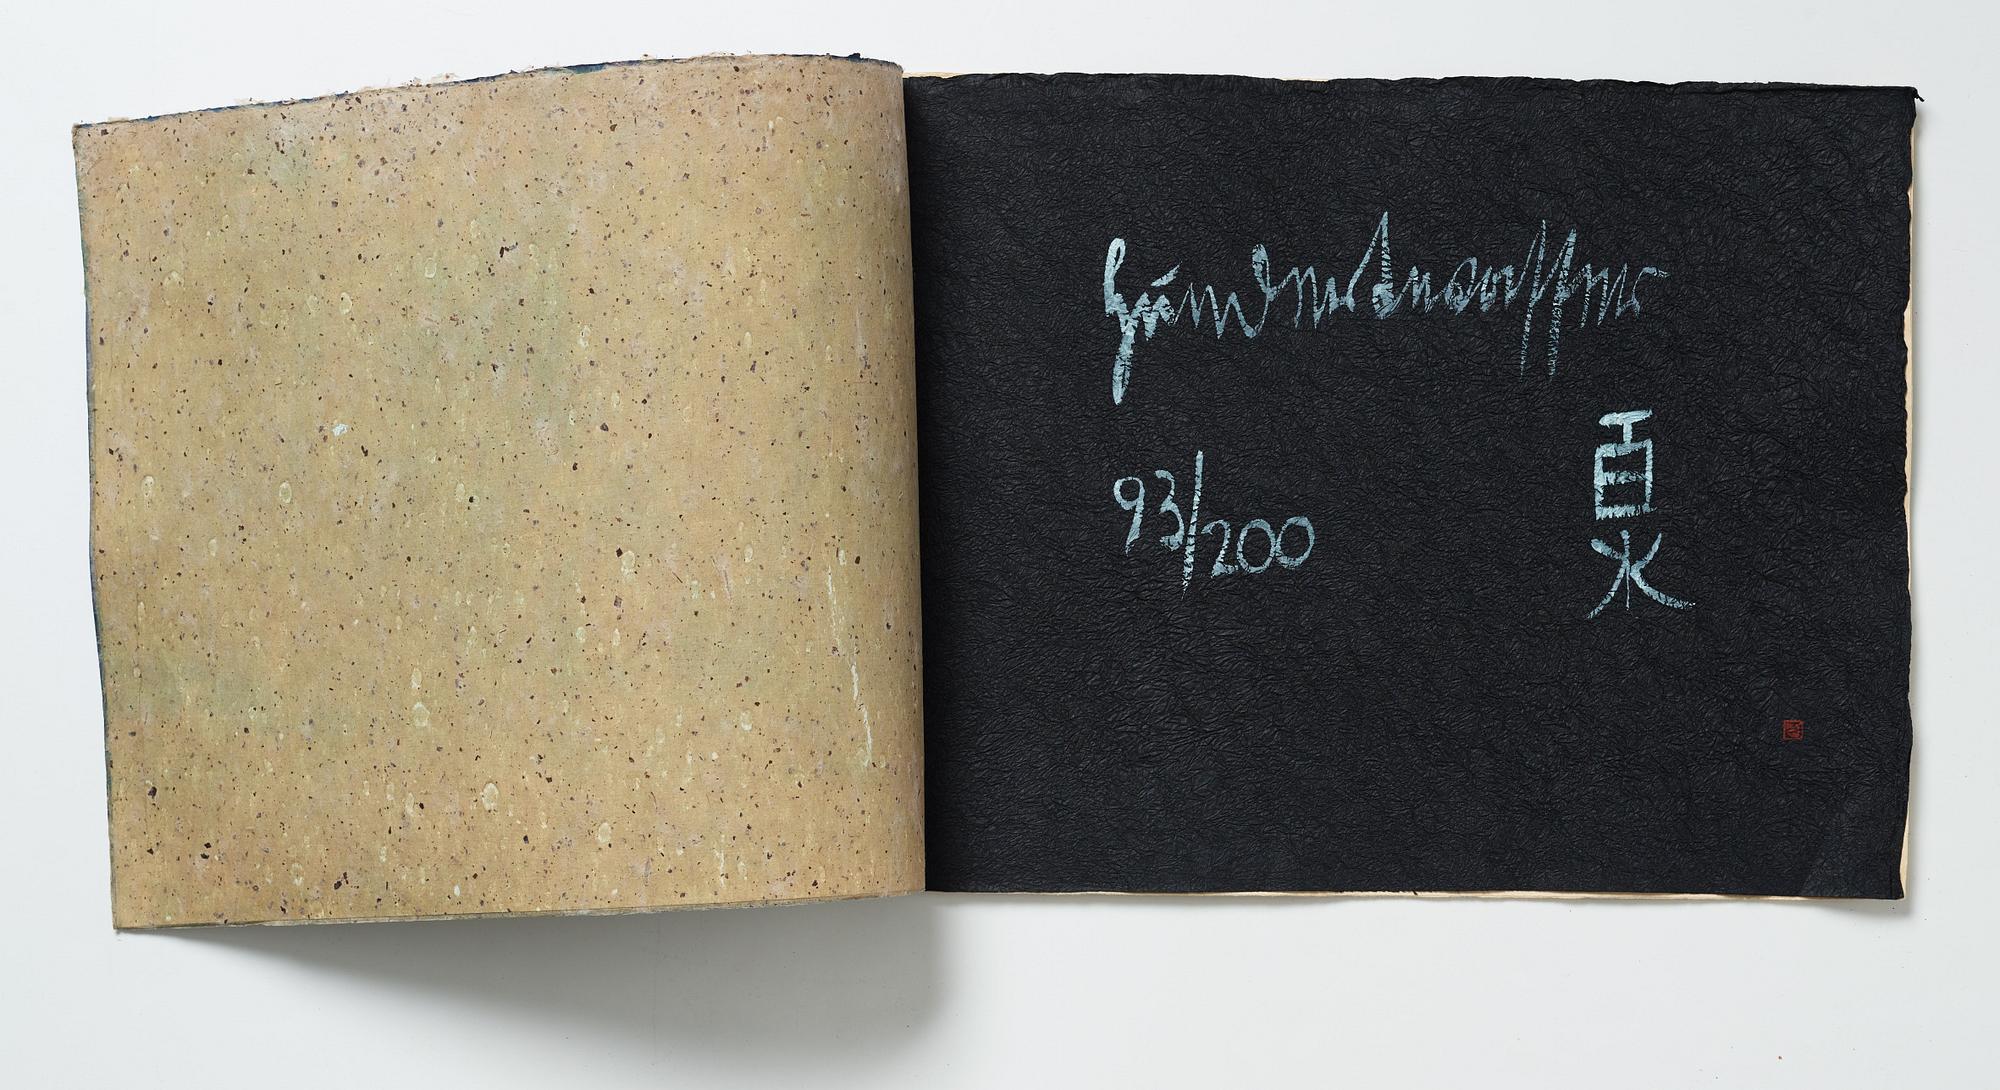 Hundertwasser
93/200
百水